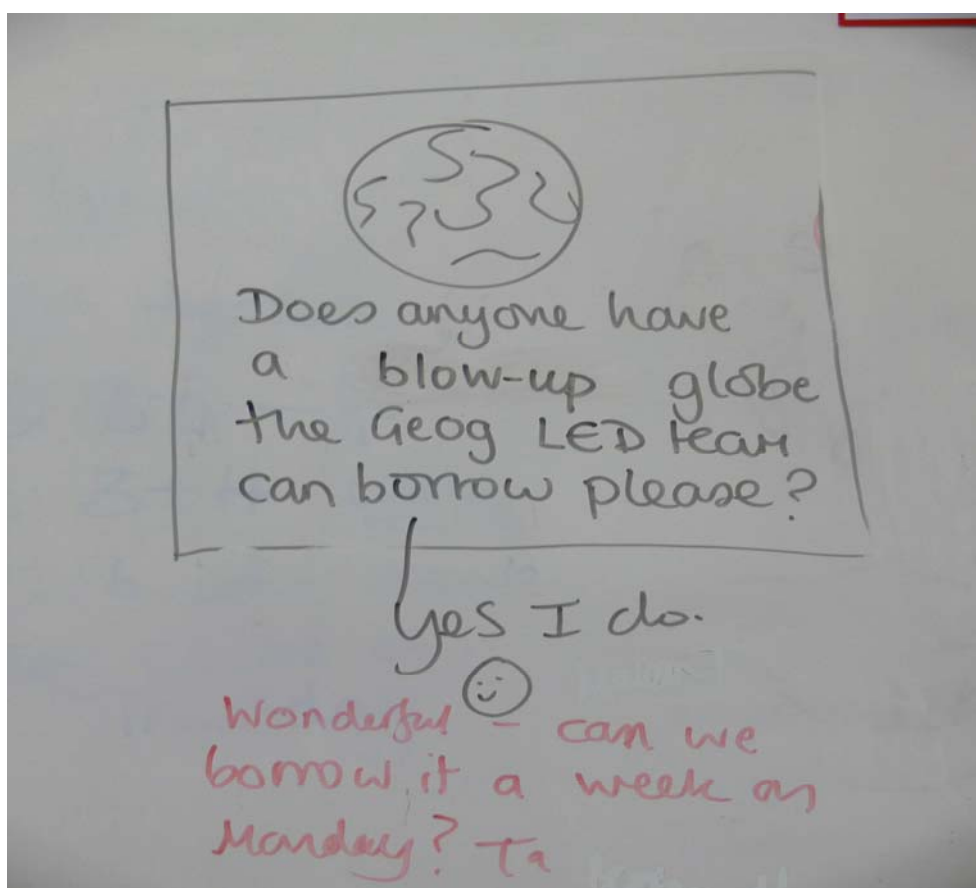 Does anyone have
a blow-up globe
the Geog LED team
can borrow please?
Yes I do.
Wonderful - can we
borrow it a week on
Monday? Ta